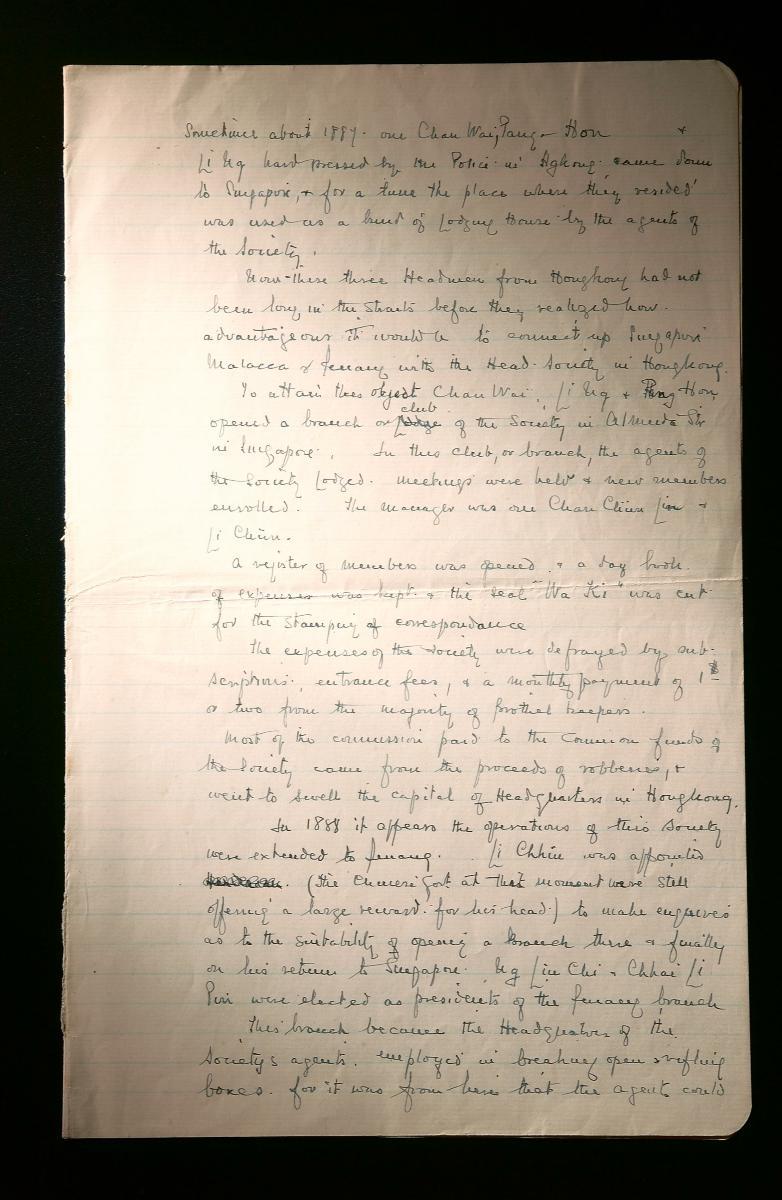 Sometime about 1887. one Chan Wai, Pang Hon &
Li Ng hard pressed by the Police in Hgkong. came down
to Singapore, & for a time the place where they resided
was used as a kind of Lodging House by the agents of
the Society.
Now these three Headmen from Hongkong had not
been long in the Straits before they realized how
advantageous it would be to connect up Singapore
Malacca & Penang with the Head Society in Hongkong.
To attain this object Chan Wai, Li Ng & Pang Hon
opened a branch or club of the Society in Almeida Str
in Singapore. In this club, or branch, the agents of
the Society Lodged. Meetings were held & new members
enrolled. The manager was one Chan Chün Lin &
Li Chün.
A register of members was opened, & a day book
of expenses was kept & the seal "Wa Ki" was cut
for the stamping of correspondance
The expenses of the Society were defrayed by sub-
scriptions, entrance fees, & a monthly payment of 1$
or two from the majority of brothel keepers.
Most of the commission paid to the Common funds of
the Society came from the proceeds of robberies, &
went to swell the capital of Headquarters in Hongkong.
In 1888 it appears the operations of this Society
were extended to Penang. Li Chhin was appointed
(The Chinese Govt at that moment were still
offering a large reward for his head) to make enquiries
as to the suitability of opening a branch there & finally
on his return to Singapore. Ng Lin Chi & Chhai Li
were elected as presidents of the Penang branch
This branch became the Headquaters of the
Society's agents. employed in breaking open & rifling
boxes. for it was from here that the agents could